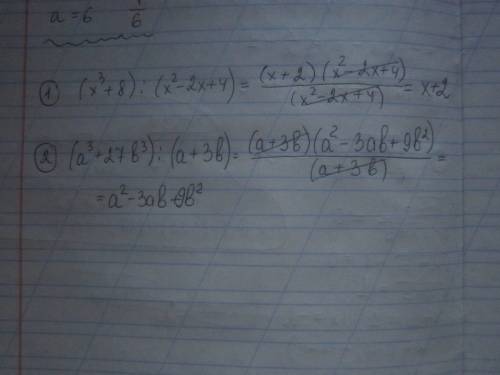 a = 6 1/6
① (x³+8) : (x²-2x+4) = (x+2)(x²-2x+4)/(x²-2x+4) = x+2
② (a³+27b³) : (a+3b) = (a+3b)(a²-3ab+9b²)/(a+3b) =
= a²-3ab+9b²